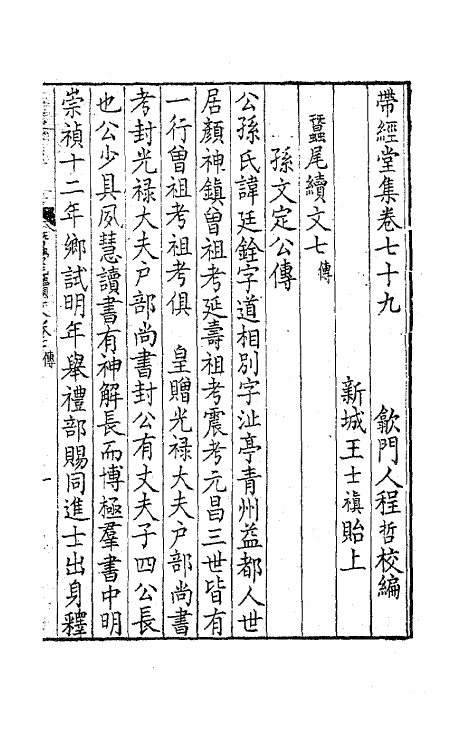 帶經堂集卷七十九　　歙門人程哲校編
新城王士禛貽上
蠶尾續文七傳
孫文定公傳
公孫氏諱廷銓字道相別字沚亭青州益都人世
居顏神鎮曾祖考延壽祖考震考元昌三世皆有
一行曾祖考祖考俱　皇贈光禄大夫户部尚書
考封光禄大夫户部尚書封公有丈夫子四公長
也公少具夙慧讀書有神解長而博極羣書中明
崇禎十二年鄉試明年舉禮部賜同進士出身釋